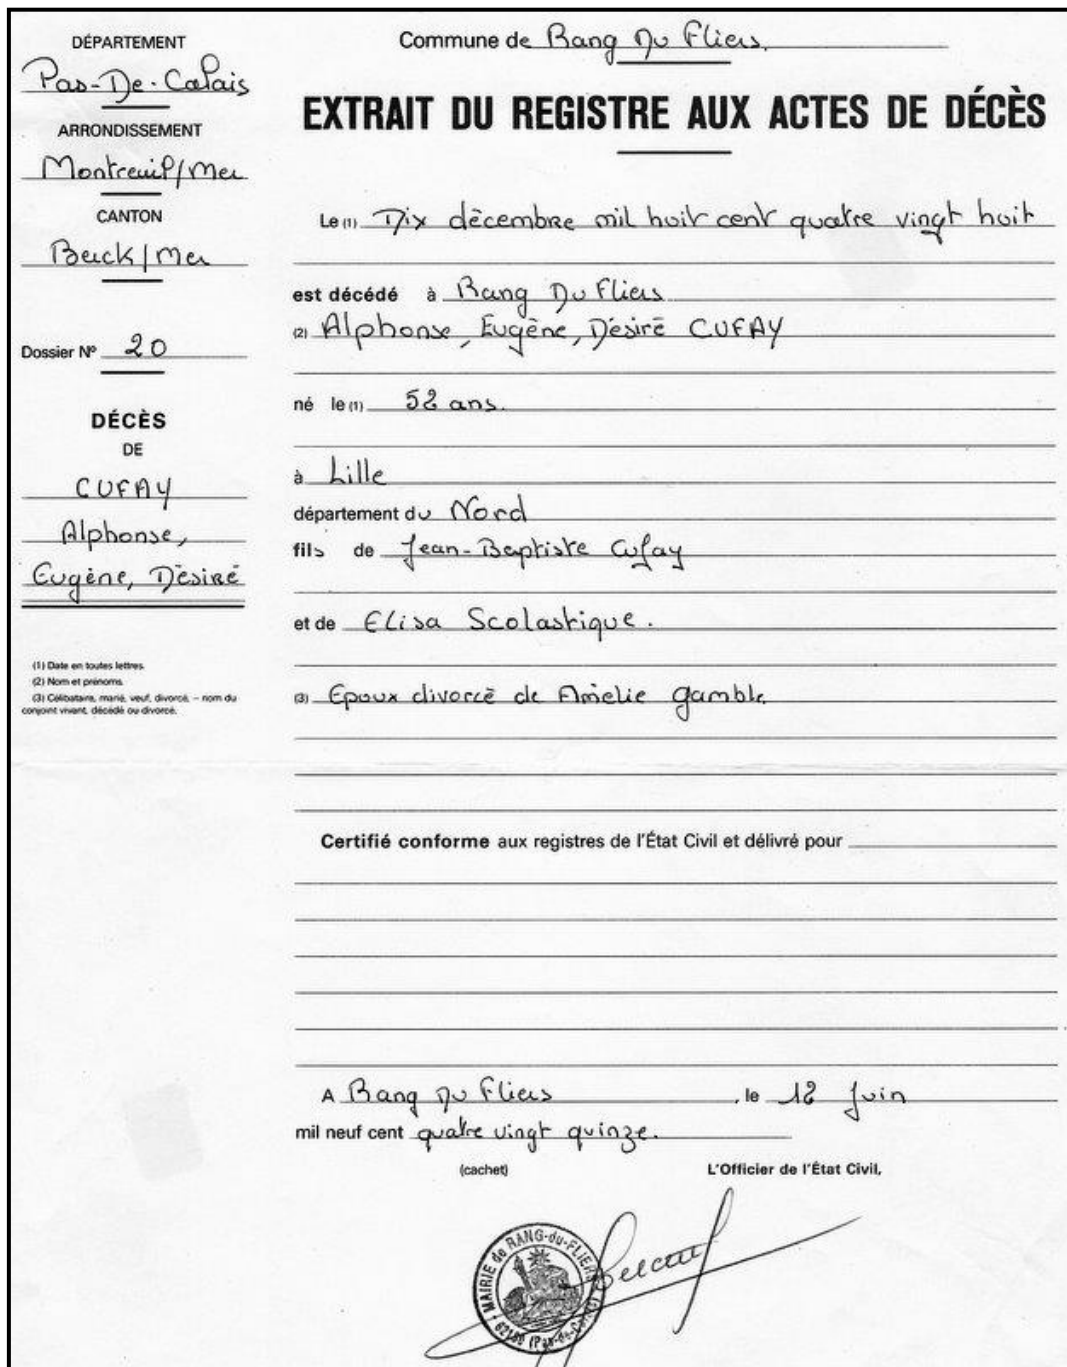 DÉPARTEMENT
Pas-De-Calais
ARRONDISSEMENT
Montreuil/Mer
CANTON
Berck/Mer
Dossier Nº 20
DÉCÈS
DE
CUFAY
Alphonse,
Eugène, Désiré
(1) Date en toutes lettres.
(2) Nom et prénoms.
(3) Célibataire, marié, veuf, divorcé, – nom du
conjoint vivant, décédé ou divorcé.
Commune de Rang Du Fliers.
EXTRAIT DU REGISTRE AUX ACTES DE DÉCÈS
Le (1) Dix décembre mil huit cent quatre vingt huit
est décédé à Rang Du Fliers
(2) Alphonse, Eugène, Désiré CUFAY
né le (1) 52 ans.
à Lille
département du Nord
fils de Jean-Baptiste Cufay
et de Elisa Scolastique.
(3) Epoux divorcé de Amélie Gamble.
Certifié conforme aux registres de l'État Civil et délivré pour
A Rang Du Fliers, le 12 Juin
mil neuf cent quatre vingt quinze.
(cachet) L'Officier de l'État Civil,
MAIRIE de RANG-du-FLIERS
62180 (Pas-de-Calais)